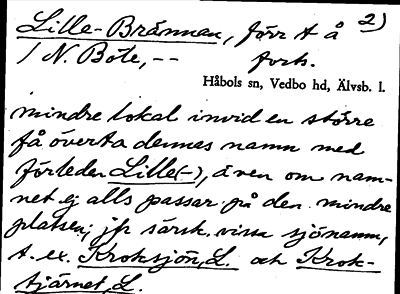 Lille-Brännan, förr t å 2)
/ N. Böte, -- forts.
Håbols sn, Vedbo hd, Älvsb. l.
mindre lokal invid en större
få överta dennes namn med
förleden Lille(-), även om nam-
net ej alls passar på den mindre
platsen, jfr särsk. vissa sjönamn,
t. ex. Kroksjön, L. och Krok-
tjärnet, L.